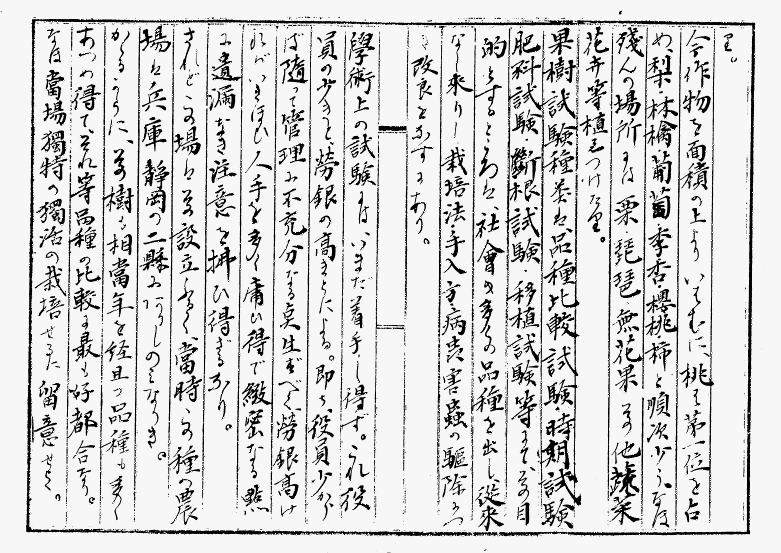 り。
今作物を面積の上よりいはむに、桃は第一位を占
め、梨・林檎・葡萄・李・杏・櫻桃・柿と順次少うなほ
殘んの場所には栗・琵琶・無花果その他蔬菜
花卉等植えつけたり。
果樹試驗種类は、品種比較試驗・時期試驗
肥料試驗・斷根試驗・移植試驗等にてその目
的とするところは、社會の多くの品種を出し、從來
なし來りし栽培法・手入方・病虫害蟲の驅除かつ
改良を為すにあり。
學術上の試驗は、いまだ着手し得ず。これ役
員の少きと、勞銀の高きとによる。即ち役員少から
ば隨って管理に不充分なる点生ずべく、勞銀高け
ればいきほひ人手を多く庸ひ得で緻密なる點
に遺漏なき注意を拂ひ得ざるなり。
されどこの場はその設立ふるく、當時この種の農
場は兵庫・靜岡の二縣にありしのみなりき。
かゝるうへに、その樹も相當年を經且つ品種も多く
あつめ得て、それ等品種の比較は最も好都合なり。
なほ當場獨特の獨活の栽培せるに留意せよ。